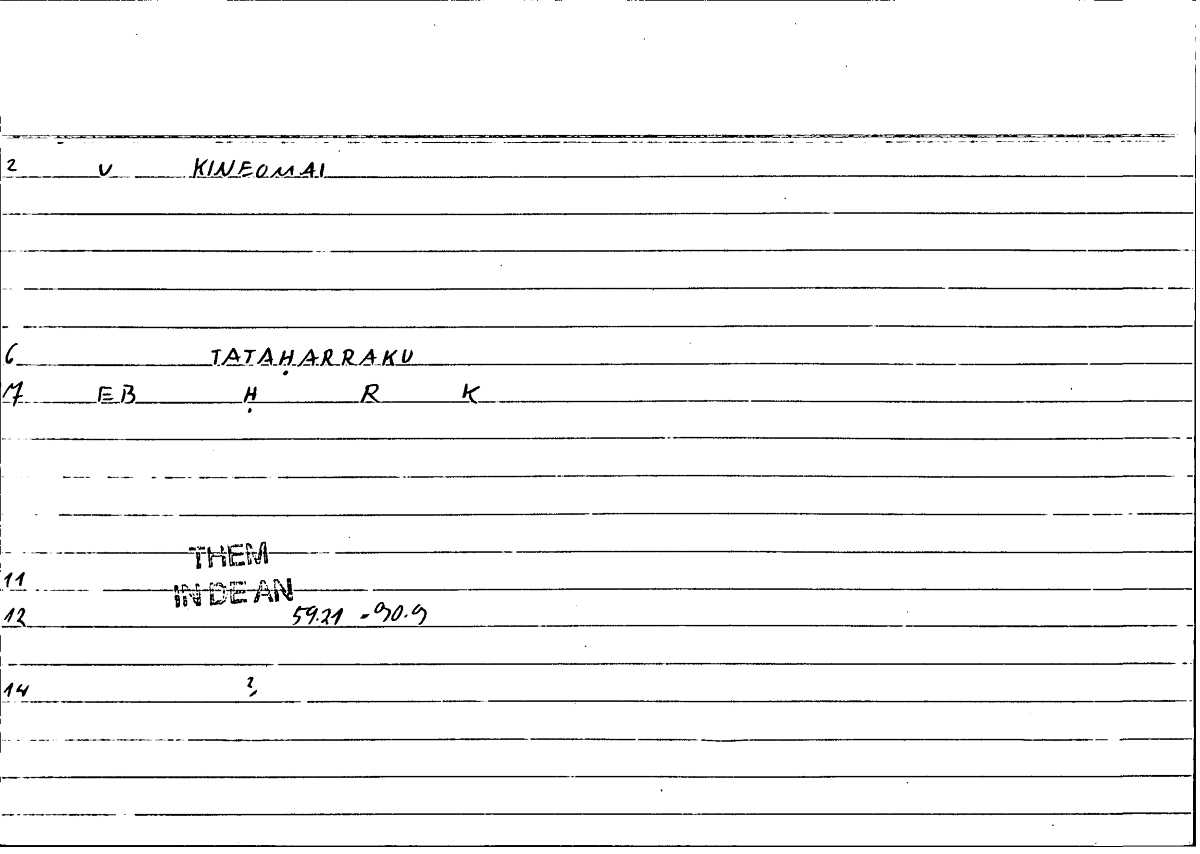 2 V KINEOMAI
6 TATAḤARRAKU
17 EB Ḥ R K
THEM
11
IN DE AN
12 59.21 -90.9
14 ?